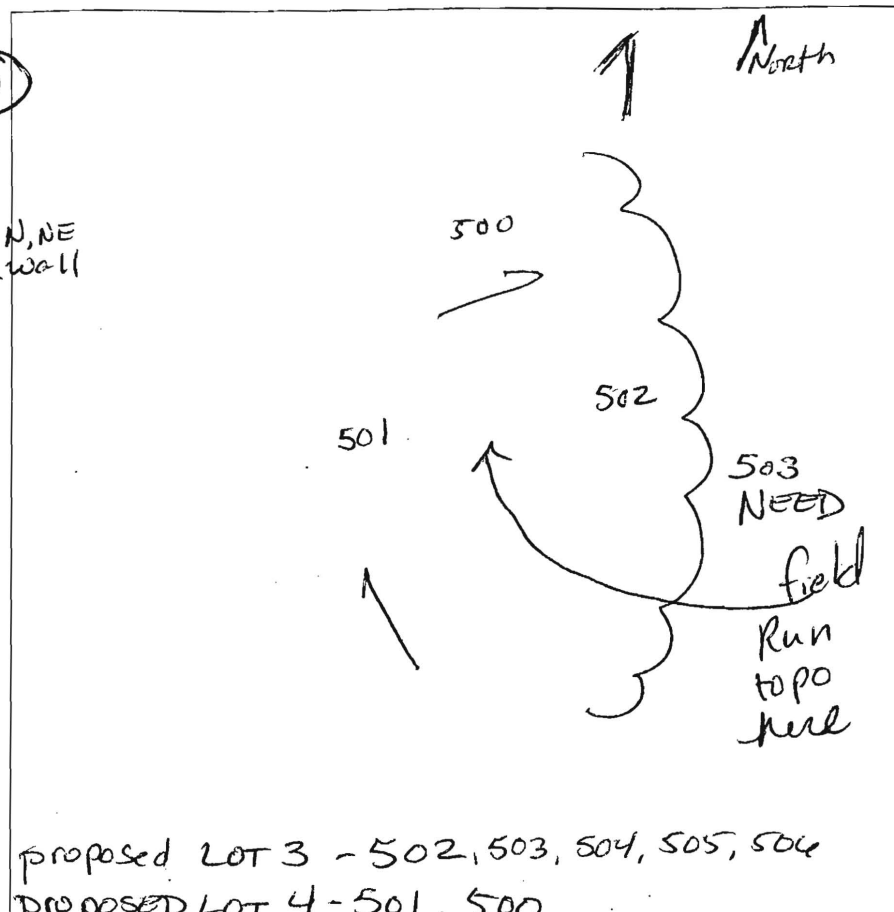 North
N, NE
wall
500
502
501
503
NEED
field
Run
topo
here
proposed LOT 3 - 502, 503, 504, 505, 506
PROPOSED LOT 4 - 501, 500